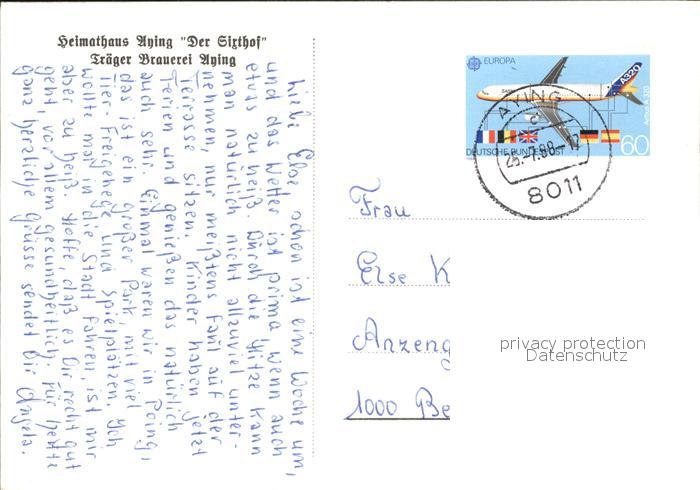 Heimathaus Aying "Der Sixthof"
Träger Brauerei Aying
Liebe Else, schon ist eine Woche um,
und das Wetter ist prima, wenn auch
etwas zu heiß. Durch die Hitze kann
man natürlich nicht allzuviel unter-
nehmen, nur meißtens faul auf der
Terrasse sitzen. Kinder haben jetzt
Ferien und genießen das natürlich
auch sehr. Einmal waren wir in Poing,
das ist ein großer Park, mit viel
Tier-Freigehege und Spielplätzen. Ich
wollte mal in die Stadt fahren, ist mir
aber zu heiß. Hoffe, daß es Dir recht gut
geht, vor allem gesundheitlich; für heute
ganz herzliche Grüsse sendet Dir Angela.
EUROPA
A320
Airbus A 320
DEUTSCHE BUNDESPOST
60
AYING
a
25.-7.88.-12
8011
Frau
Else K
Anzeng
1000 Be
privacy protection
Datenschutz